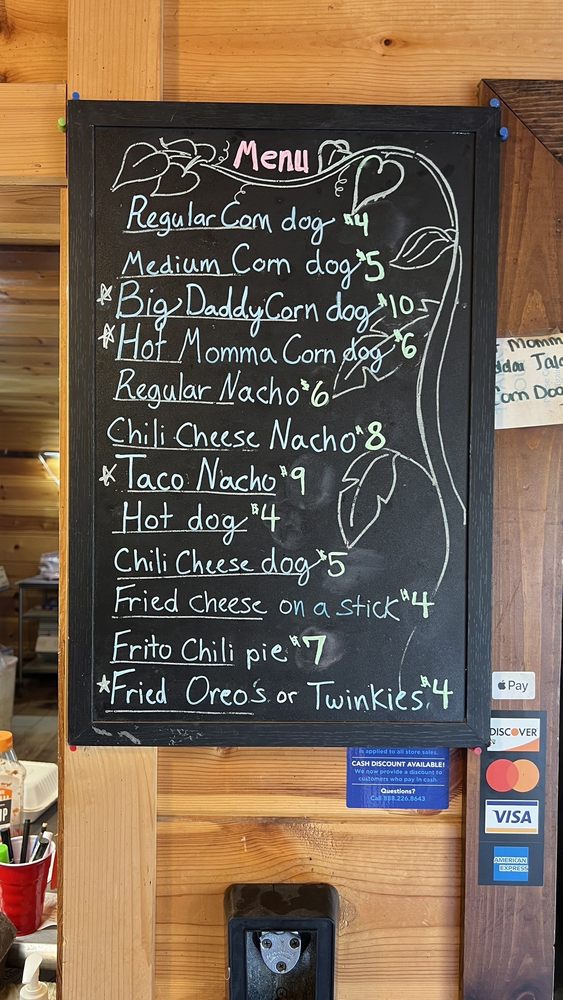 Menu
Regular Corn dog $4
Medium Corn dog $5
Big Daddy Corn dog $10
Hot Momma Corn dog $6
Regular Nacho $6
Chili Cheese Nacho $8
Taco Nacho $9
Hot dog $4
Chili Cheese dog $5
Fried cheese on a stick $4
Frito Chili pie $7
Fried Oreo's or Twinkies $4
Momm
Jala
Corn Dog
Pay
DISCOVER
VISA
AMERICAN
EXPRESS
is applied to all store sales.
CASH DISCOUNT AVAILABLE!
We now provide a discount to
customers who pay in cash.
Questions?
Call 888.226.8643